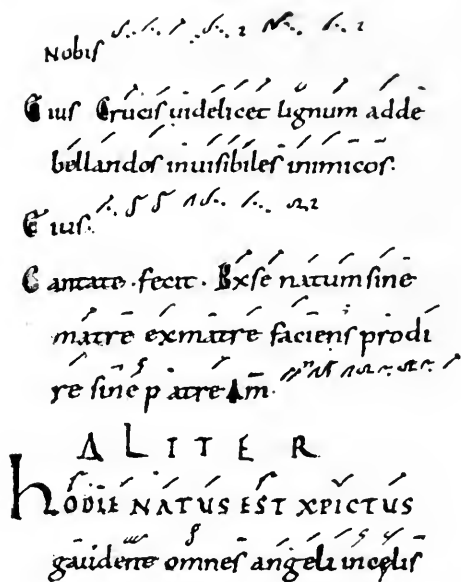 Nobis
Eius Crucis uidelicet lignum adde
bellandos inuisibiles inimicos.
Eius.
Cantate · fecit · Exse natum sine
matre exmatre faciens prodi
re sine patre Am̄
ALITER
HODIE NATUS EST XPICTUS
gaudente omnes angeli incelis